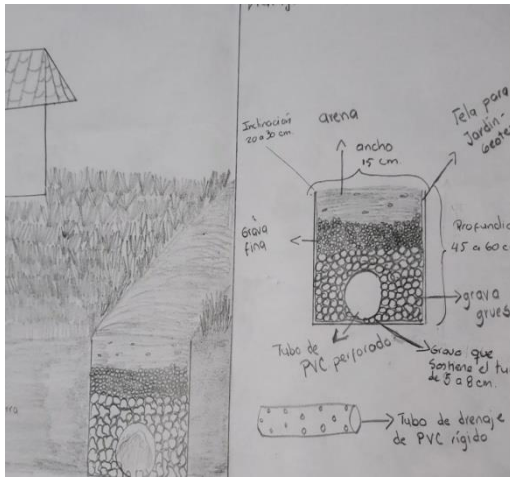 Inclinación
20 a 30 cm.
arena
ancho
15 cm.
Tela para
Jardín-
Grava
fina
45 a 60
grava
Tubo de
PVC perforado
Grava que
sostiene el
de 5 a 8 cm.
Tubo de drenaje
de PVC rígido